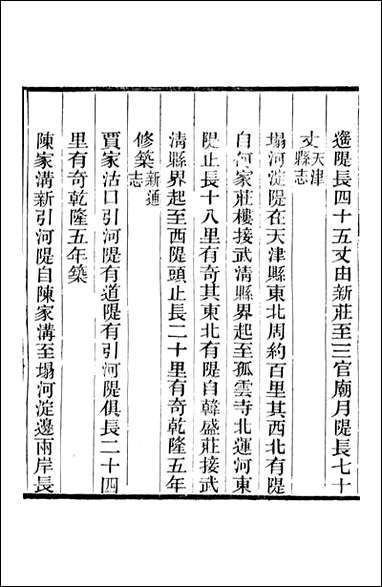 遙隄長四十五丈由新莊至三官廟月隄長七十
丈天津縣志
塌河淀隄在天津縣東北周約百里其西北有隄
自何家莊樓接武淸縣界起至孤雲寺北運河東
隄止長十八里有奇其東北有隄自韓盛莊接武
淸縣界起至西隄頭止長二十里有奇乾隆五年
修築新通志
賈家沽口引河隄有道隄有引河隄俱長二十四
里有奇乾隆五年築
陳家溝新引河隄自陳家溝至塌河淀邊兩岸長